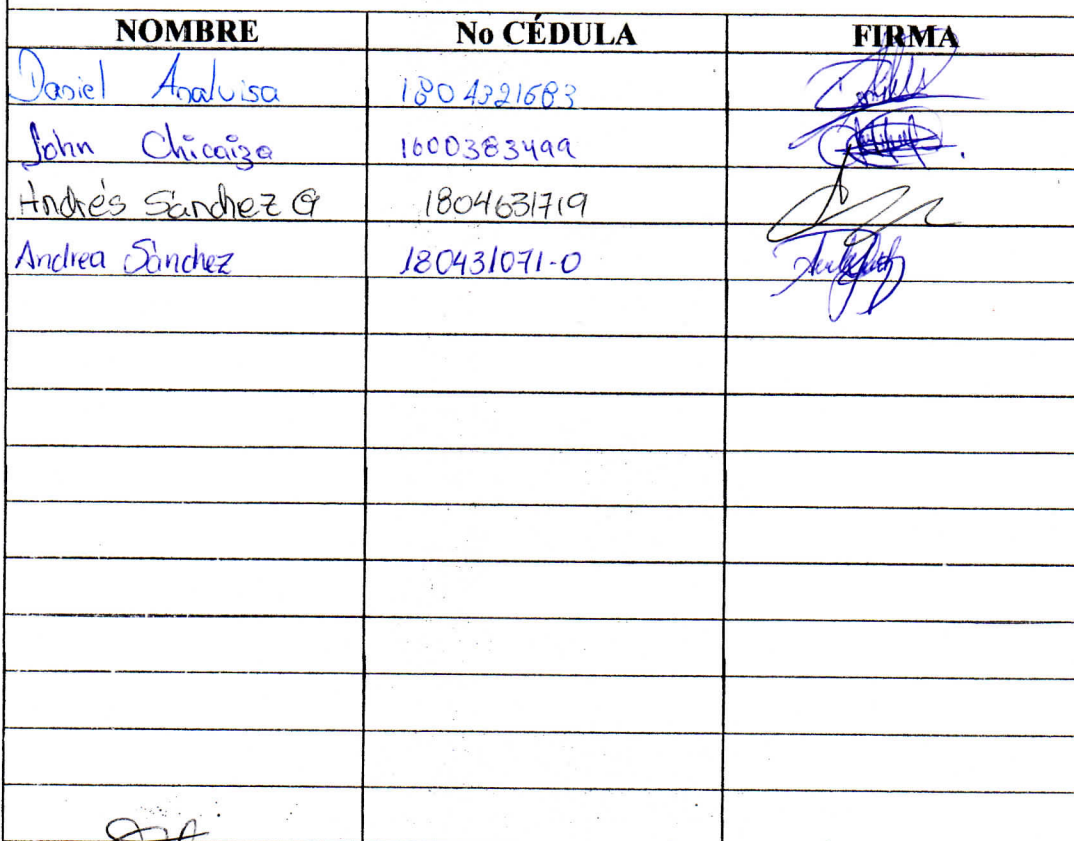 NOMBRE No CÉDULA FIRMA
Daniel Analuisa 1804321683
John Chicaiza 1600383499
Andrés Sánchez G 1804631719
Andrea Sánchez 180431071-0